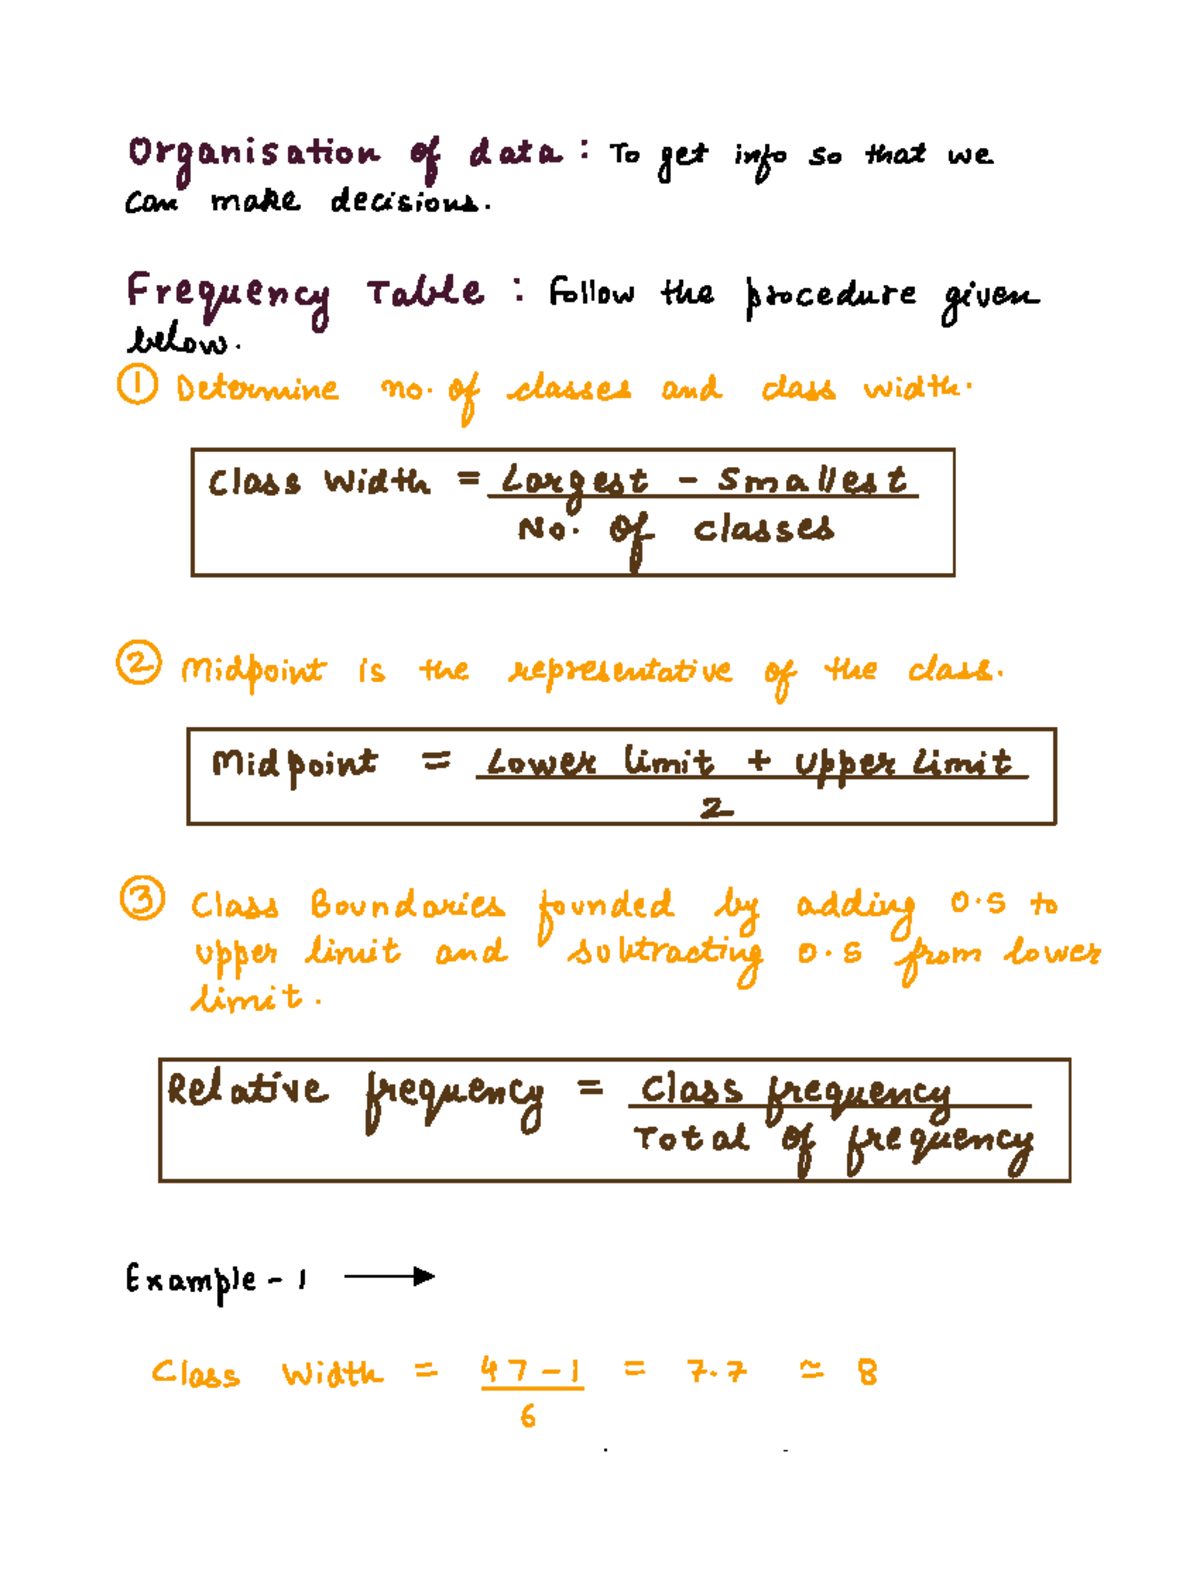 Organisation of data : To get info so that we
can make decisions.
Frequency Table : Follow the procedure given
below.
① Determine no. of classes and class width.
Class Width = Largest - Smallest
No. of classes
② Midpoint is the representative of the class.
Midpoint = Lower limit + Upper Limit
2
③ Class Boundaries founded by adding 0.5 to
upper limit and subtracting 0.5 from lower
limit.
Relative frequency = Class frequency
Total of frequency
Example - 1 →
Class Width = 47 - 1 = 7.7 ≃ 8
6